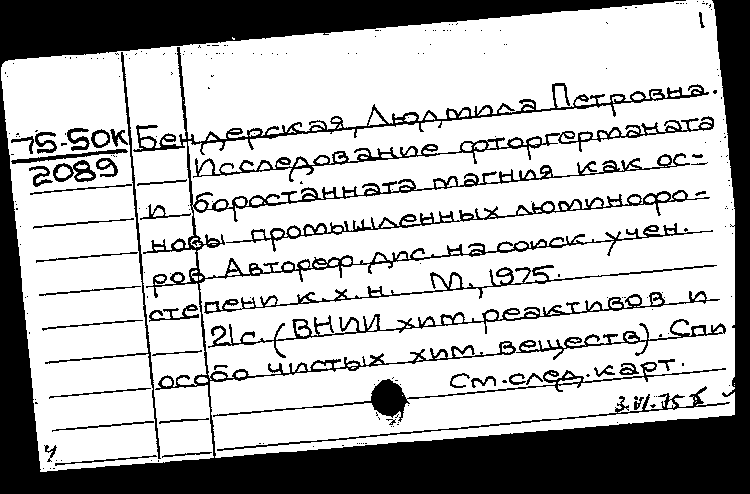 1
75-50к Бендерская, Людмила Петровна.
2089 Исследование фторгерманата
и боростанната магния как ос-
новы промышленных люминофо-
ров. Автореф. дис. на соиск. учен.
степени к.х.н. М., 1975.
21с. (ВНИИ хим. реактивов и
особо чистых хим. веществ). Спи-
См. след. карт.
3.VI.75